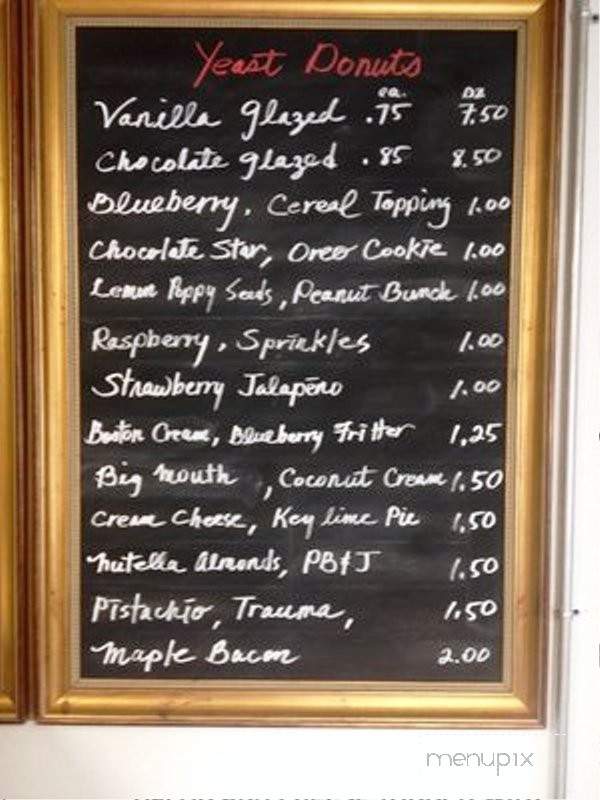 Yeast Donuts
ea. DZ
Vanilla glazed .75 7.50
Chocolate glazed .85 8.50
Blueberry, Cereal Topping 1.00
Chocolate Star, Oreo Cookie 1.00
Lemon Poppy Seeds, Peanut Bunch 1.00
Raspberry, Sprinkles 1.00
Strawberry Jalapeño 1.00
Boston Cream, Blueberry Fritter 1.25
Big Mouth, Coconut Cream 1.50
Cream Cheese, Key lime Pie 1.50
Nutella Almonds, PB&J 1.50
Pistachio, Trauma, 1.50
Maple Bacon 2.00
menupix